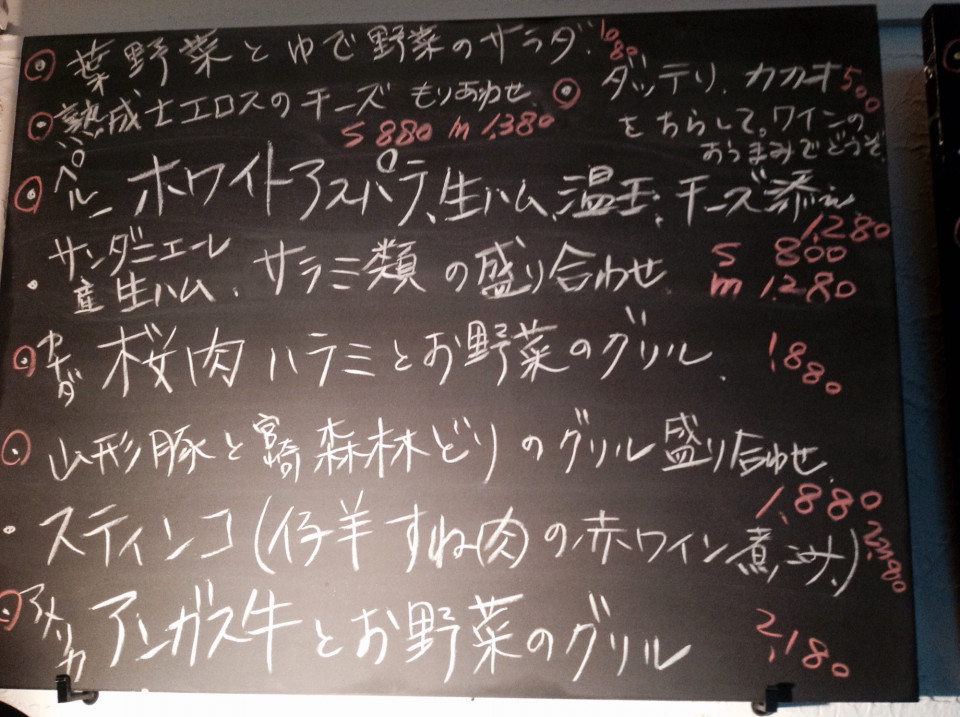 葉野菜とゆで野菜のサラダ. 1080
熟成士エロスのチーズ もりあわせ.
S 880 m 1,380
ダッテリ、カカオ 500
をちらして。ワインの
おつまみでどうぞ.
ペルー ホワイトアスパラ、生ハム、温玉、チーズ添え
1,280
サンダニエーレ産 生ハム、サラミ類の盛り合わせ
S 800
m 1,280
カナダ 桜肉ハラミとお野菜のグリル. 1,880
山形豚と宮崎森林どりのグリル盛り合わせ.
1,880
スティンコ(仔羊すね肉の赤ワイン煮込み)
アメリカ アンガス牛とお野菜のグリル 2,180